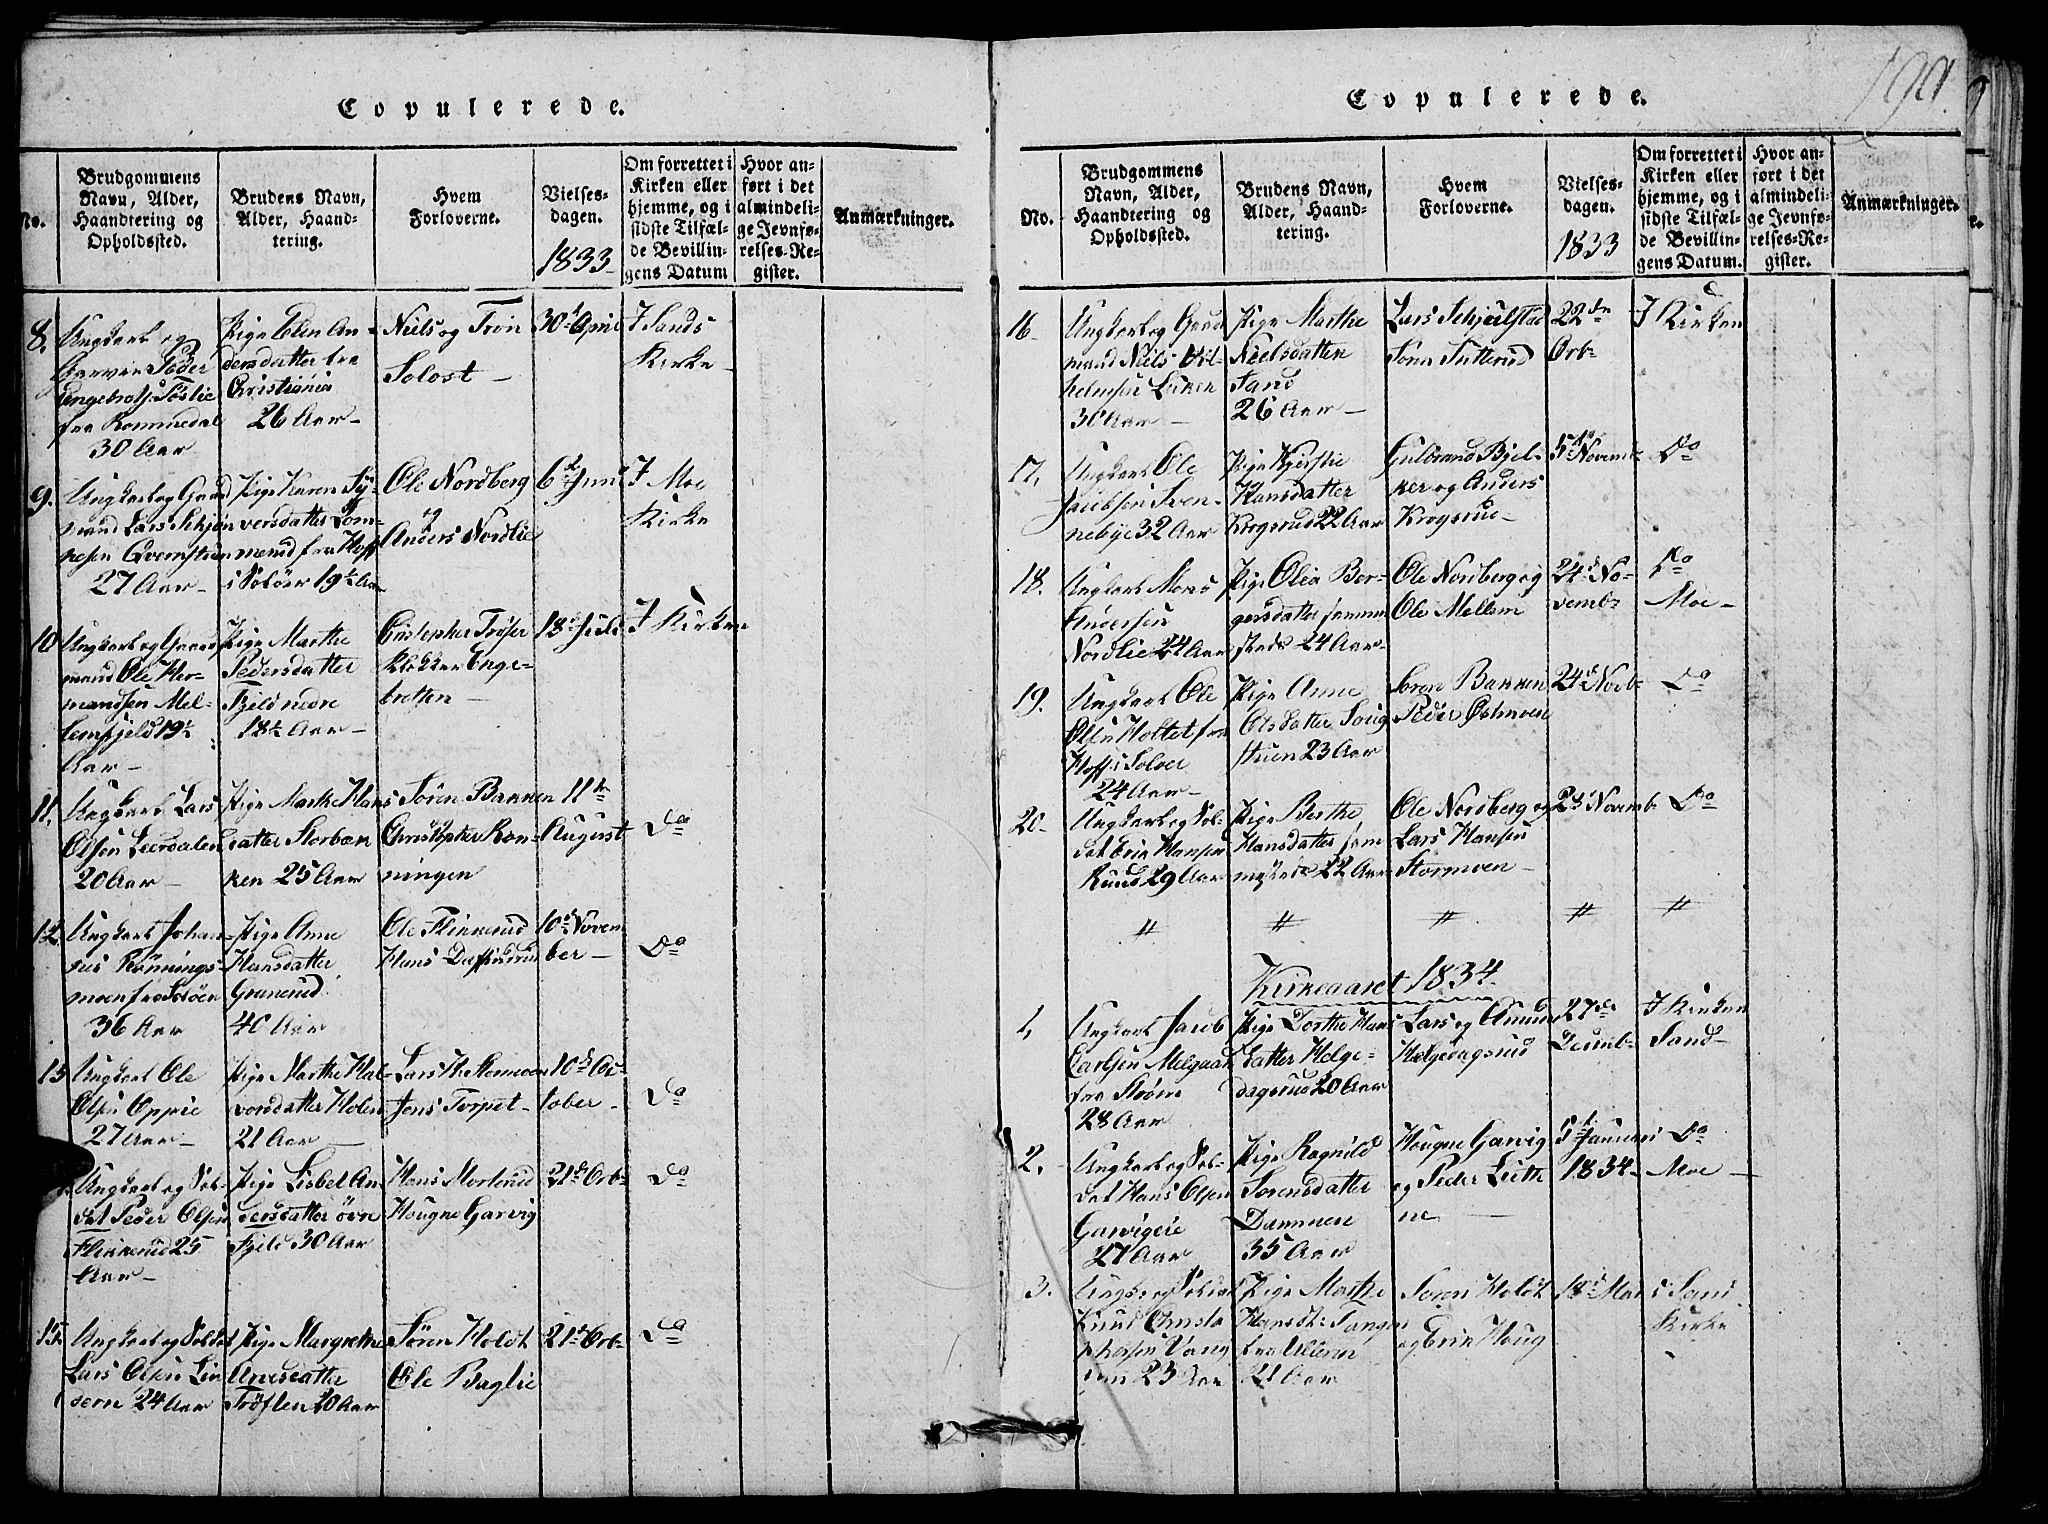 Copulerede.
No.
Brudgommens
Navn, Alder,
Haandtering og
Opholdssted.
Brudens Navn,
Alder, Haand-
tering.
Hvem
Forloverne.
Vielses-
dagen.
1833
Om forrettet i
Kirken eller
hjemme, og i
sidste Tilfæl-
de Bevillin-
gens Datum
Hvor an-
ført i det
almindeli-
ge Jevnfø-
relses-Re-
gister.
Anmærkninger.
8.
Ungkarl og
Peder
Engebretsen
fra Rommedal
30 Aar
Pige Elen An-
dersdatter fra
Christiania
26 Aar-
Niels og Tron
Solost -
30 April
I Sands
Kirke -
9.
Ungkarl og Gaard
mand Lars
27 Aar -
Pige Karen Sy-
versdatter Lom-
merud fra Hoff
i Soløer 19½ Aar
Ole Nordberg
og
Anders Nordlie
6 Juni
I Moe
Kirke
10
Ungkarl og Gaard
mand Ole Her-
mandsen Mel-
lemfjeld 19½
Aar -
Pige Marthe
Pedersdatter
Fjeld nedre
18½ Aar -
Christopher
Klokker Enge-
bretsen -
18 Juli
I Kirken
11.
Ungkarl Lars
Olsen
20 Aar -
Pige Marthe Hans
datter Storbæk
ken 25 Aar
Søren Bakken
Christopher Røn-
ningen
11te
August
Do
12.
Ungkarl Johan-
nes Rønnings-
moen fra Soløer
36 Aar
Pige Anne
Hansdatter
Granerud
40 Aar
Ole Flikkerud
Hans
10 Novem
ber -
Do
13
Ungkarl Ole
Olsen Oppie
27 Aar -
Pige Marthe Hal-
vorsdatter Holen
21 Aar -
Lars
Jens Torpet -
10 Oc-
tober -
Do
Ungkarl og Sol-
dat Peder Olsen
Flikkerud 25
Aar -
Pige Lisbet An-
dersdatter øvre
Fjeld 30 Aar
Hans Morterud
Hougne Garvig
21 Octbr
Do
15.
Ungkarl og Soldat
Lars Olsen Lin
dern 24 Aar
Pige Margrethe
Arnesdatter
Trøften 20 Aar
Søren Holdt
Ole Baglie
21 Octbr
Do
Copulerede.
No.
Brudgommens
Navn, Alder,
Haandtering og
Opholdssted.
Brudens Navn,
Alder, Haand-
tering.
Hvem
Forloverne.
Vielses-
dagen.
1833
Om forrettet i
Kirken eller
hjemme, og i
sidste Tilfæl-
de Bevillin-
gens Datum.
Hvor an-
ført i det
almindeli-
ge Jevnfø-
relses-Re-
gister.
Anmærkninger.
16.
Ungkarl og Gaard
mand Niels Vil-
helmsen Løken
30 Aar -
Pige Marthe
Nielsdatter
Sand
26 Aar -
Lars Schjulstad
22de
Octbr
I Kirken
17.
Ungkarl Ole
Jacobsen Sven-
nebye 32 Aar
Pige Kjerstie
Hansdatter
Krogsrud 22 Aar
Gulbrand Bjel-
ker og Anders
Krogsrue -
5te Novembr
Do
18.
Ungkarl Mons
Andersen
Nordlie 24 Aar
Pige Olia Bor-
gersdatter samme
steds 24 Aar -
Ole Nordberg og
Ole Mellem
24 No-
vembr
Do
Moe -
19.
Ungkarl Ole
Olsen Holtet fra
Hoff i Soløer
24 Aar -
Pige Anne
Olsdatter Soug
stuen 23 Aar
Soren Bakken
Peder Østmoen
24 Novbr
Do
20.
Ungkarl og Sol-
dat Erik Hansen
Ruud 29 Aar
Pige Berthe
Hansdatter sam
mesteds 22 Aar
Ole Nordberg og
Lars Hansen
Stormoen -
Novemb
Do
〃 〃 〃 〃 〃
Kirkeaaret 1834.
1,
Ungkarl Jacob
Carlsen Melgaard
fra Strøm
28 Aar
Pige Dorthe Hans
datter Helge-
dagsrud 20 Aar
Lars og Amund
Helgedagsrud
27de
Decemb-
I Kirken
Sand -
2.
Ungkarl og Sol-
dat Hans Olsen
Garvigeie
27 Aar
Pige Ragnild
Sorensdatter
Dammen
35 Aar
Hougne Garvig
og Peder Lieth
ne -
5 Januari
1834 -
Do
Moe -
3.
Ungkarl og Soldat
Knud Christo
phersen Vang
23 Aar
Pige Marthe
Hansdtr Tangen
fra Ullern
21 Aar
Soren Holdt
og Erik Houg
18 Mai
i Sand
Kirke